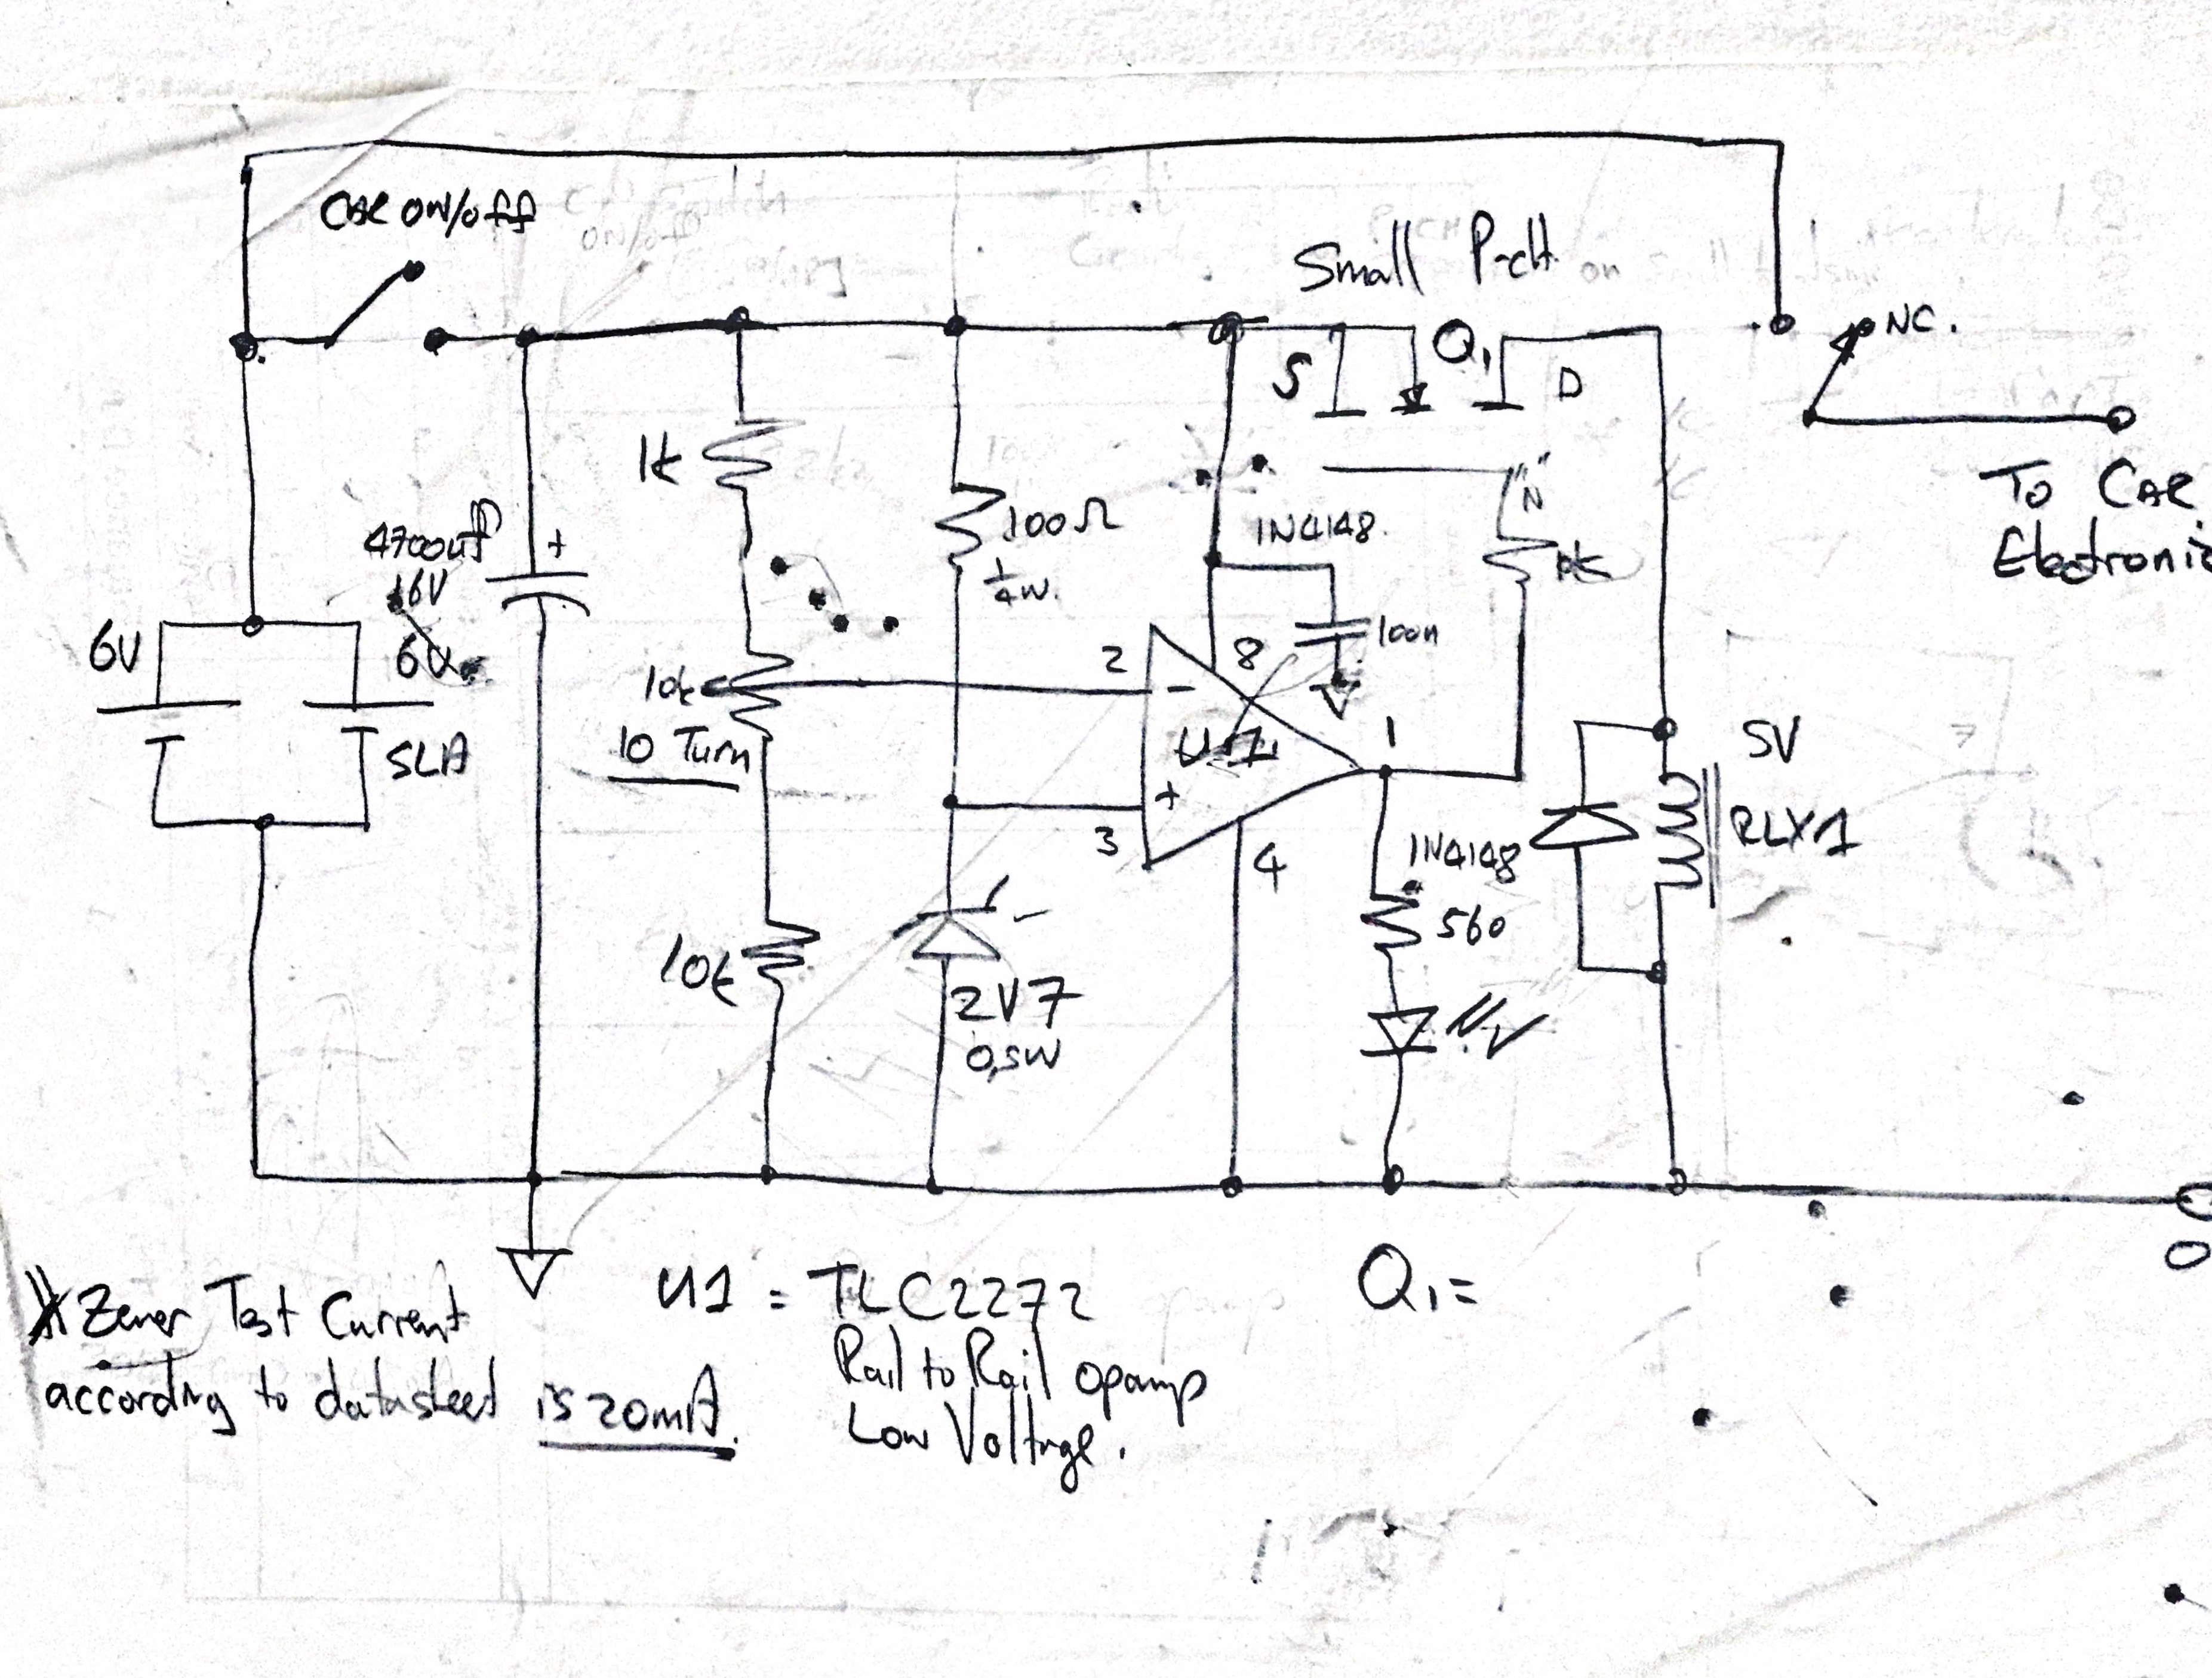 CAR ON/OFF
Small P-CH
S
Q1
D
NC.
1K
4700uf
16V
+
100Ω
1/4W.
1N4148.
"N"
To CAR
Electronic
6V
6V
SLA
10k
10 Turn
2
8
100n
-
U1
1
+
3
4
5V
RLX1
1N4148
560
10k
2V7
0,5W
Zener Test Current
according to datasheet is 20mA.
U1 = TLC2272
Rail to Rail opamp
Low Voltage.
Q1=
0